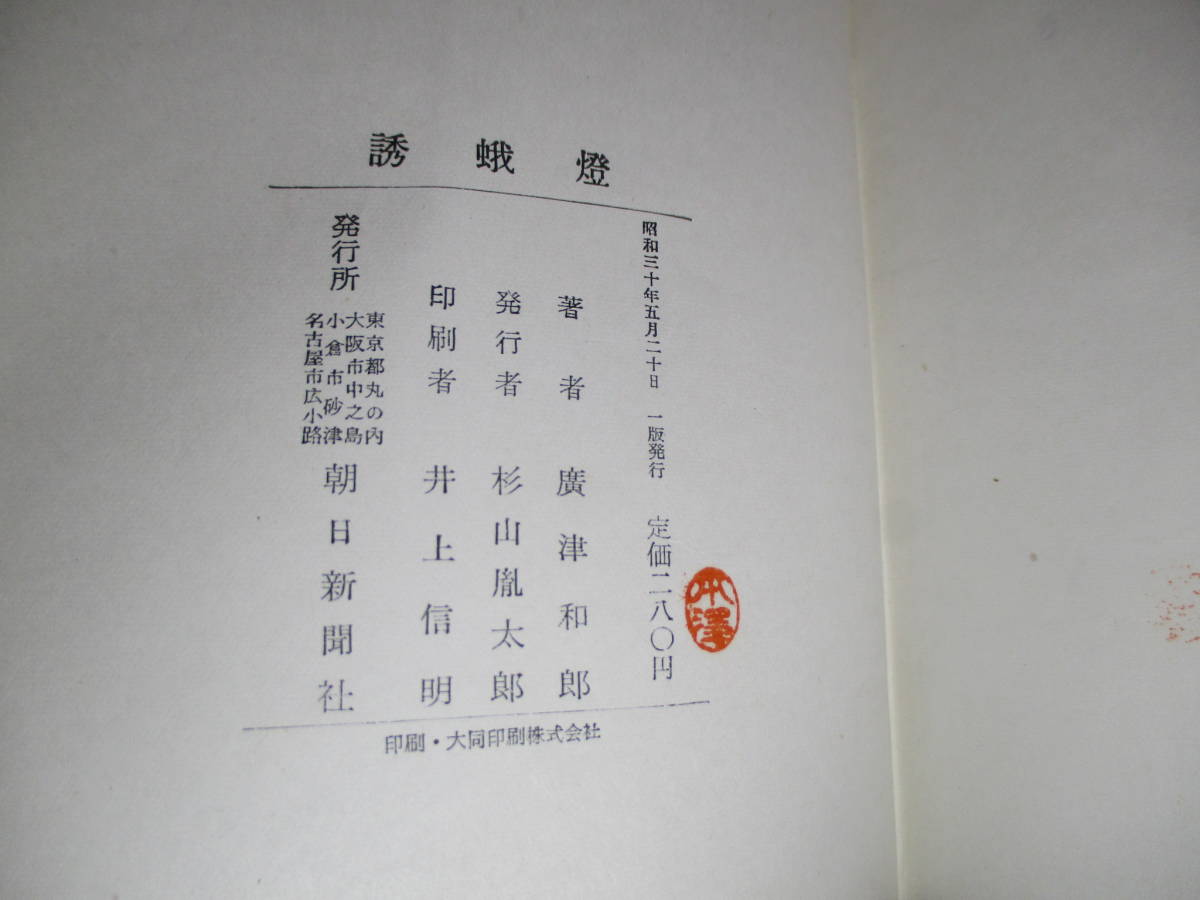 誘蛾燈
昭和三十年五月二十日 一版発行 定価二八〇円
著者 廣津和郎
発行者 杉山胤太郎
印刷者 井上信明
発行所
東京都丸の内
大阪市中之島
小倉市砂津
名古屋市広小路
朝日新聞社
印刷・大同印刷株式会社